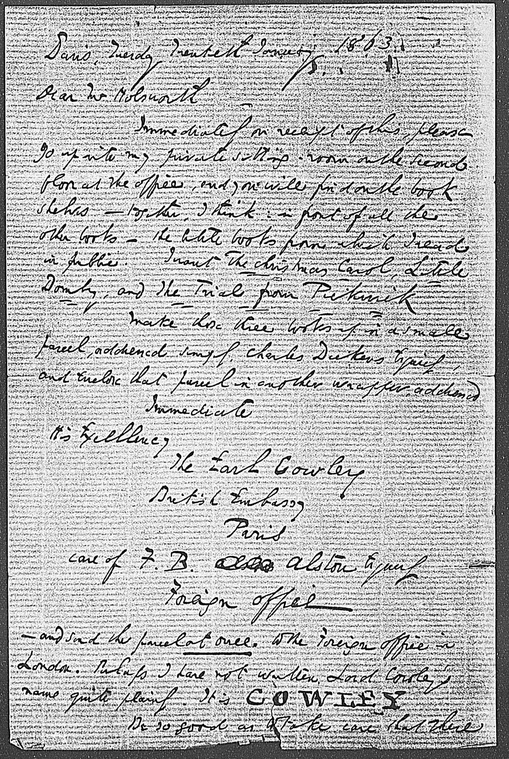 Paris, Tuesday Twentieth January, 1863.
Dear Mr Holsworth
Immediately on receipt of this, please
go up into my private sitting-room on the second
floor at the office, and you will find on the book
shelves — together, I think: in front of all the
other books — the little books from which I read
in public. I want The Christmas Carol, Little
Domby, and The Trial from Pickwick
Make those three books up in a small
parcel, addressed simply Charles Dickens Esquire,
and enclose that parcel in another wrapper addressed
Immediate
His Excellency
The Earl Cowley
British Embassy
Paris
care of F. B. Alston Esquire
Foreign Office
— and send the parcel at once, to the Foreign Office in
London. Perhaps I have not written Lord Cowley's
name quite plainly. It is COWLEY
Be so good as to take care that there